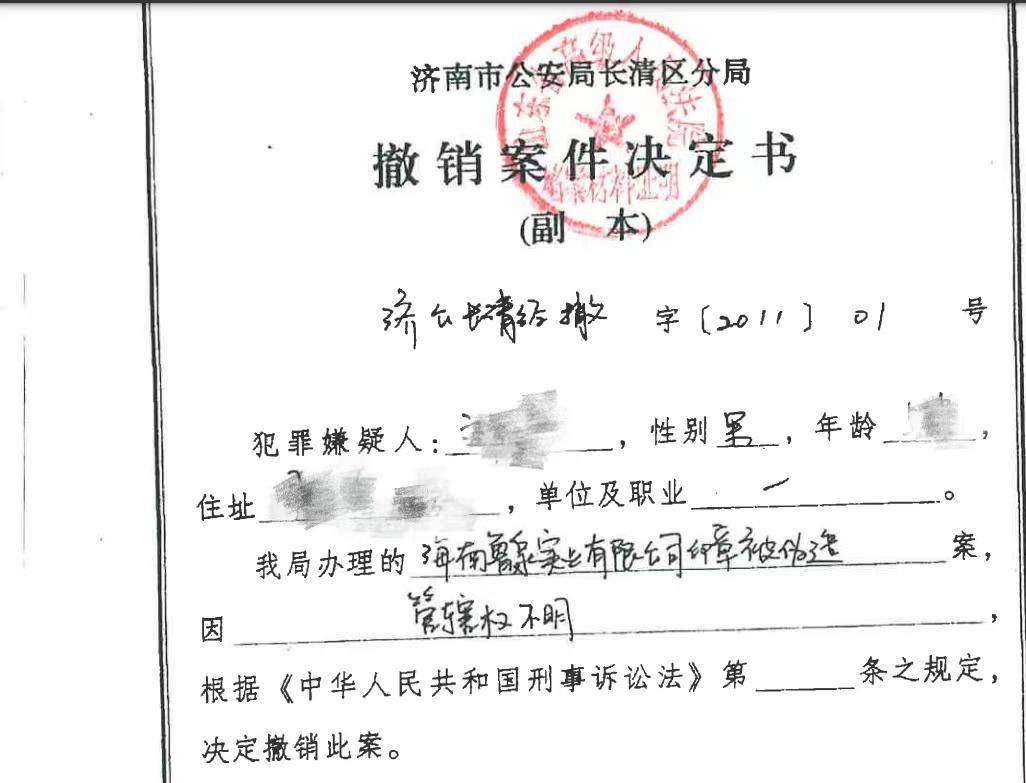 济南市公安局长清区分局
撤销案件决定书
(副 本)
济公长清经撤 字〔2011〕01 号
犯罪嫌疑人：，性别男，年龄，
住址，单位及职业 一 。
我局办理的海南鲁泉实业有限公司印章被伪造案，
因管辖权不明，
根据《中华人民共和国刑事诉讼法》第 条之规定，
决定撤销此案。
档案材料证明